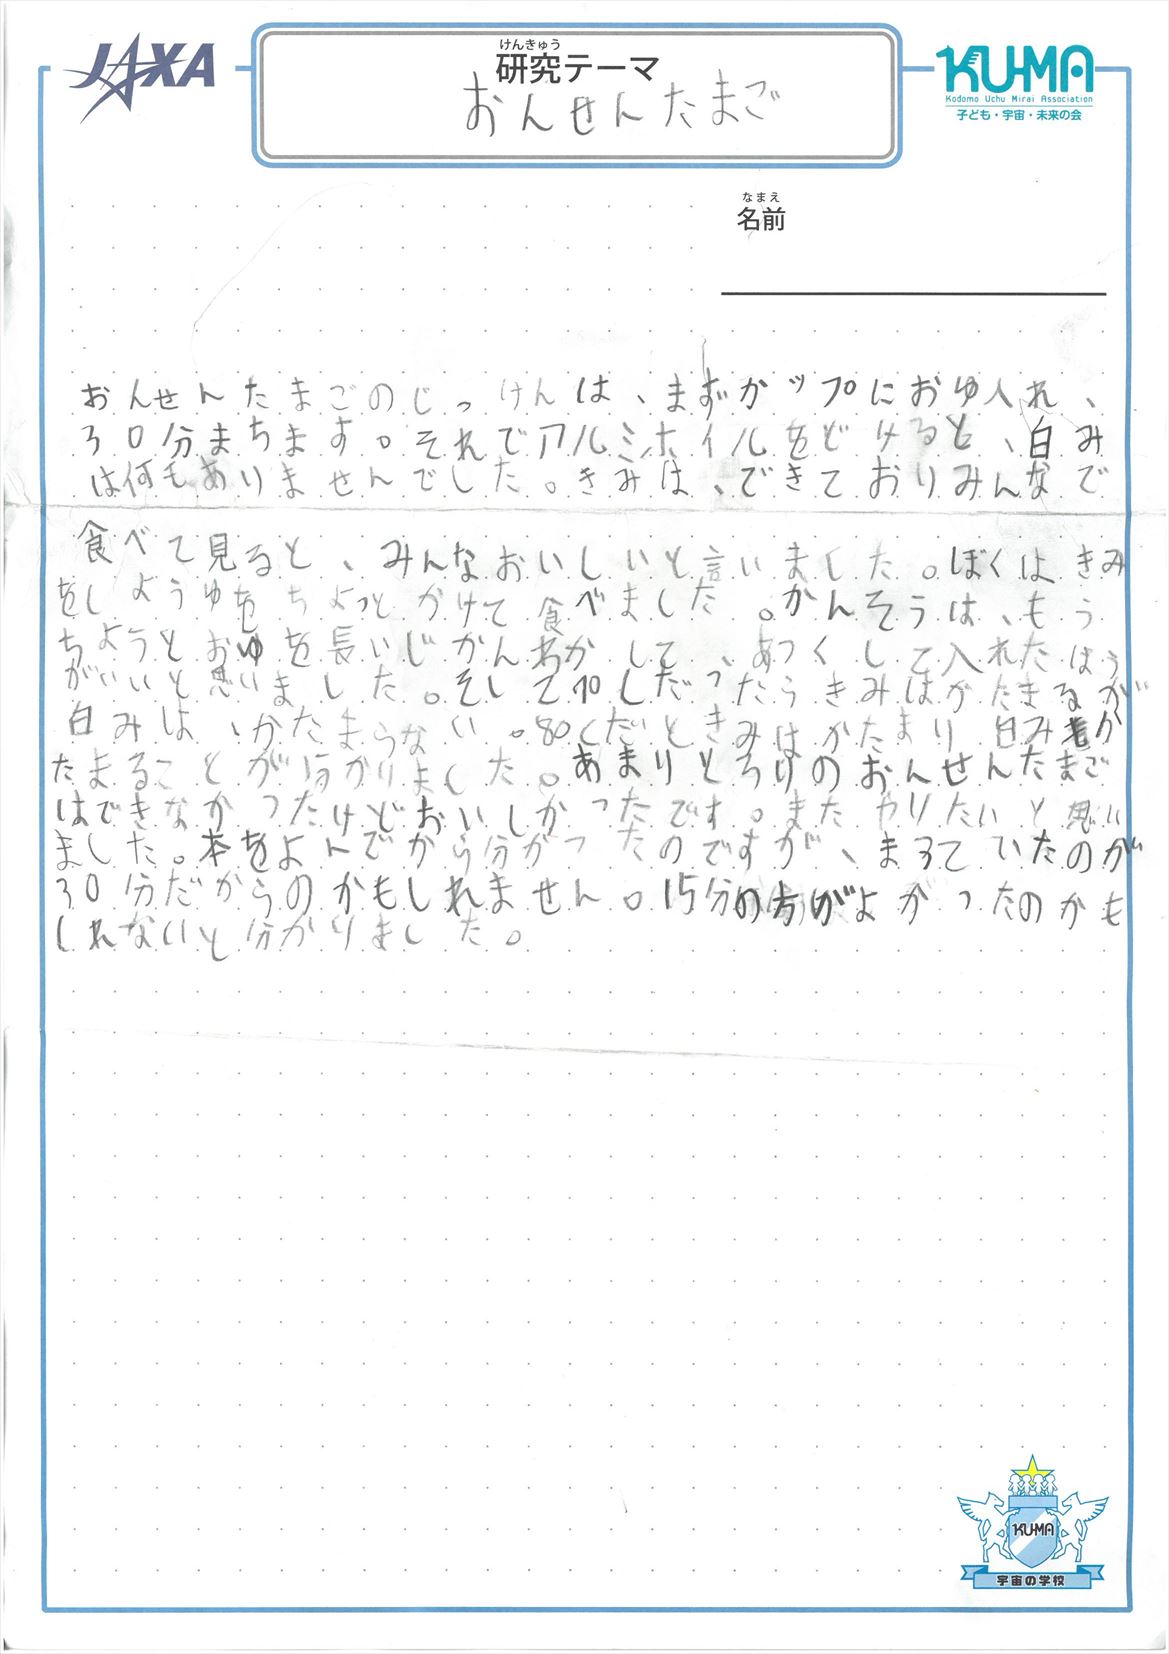 JAXA
けんきゅう
研究テーマ
おんせんたまご
KU-MA
Kodomo Uchu Mirai Association
子ども・宇宙・未来の会
なまえ
名前
おんせんたまごのじっけんは、まずカップにおゆ入れ、
30分まちます。それでアルミホイルをどけると、白み
は何もありませんでした。きみは、できておりみんなで
食べて見ると、みんなおいしいと言いました。ぼくはきみ
をしょうゆをちょっとかけて食べました。かんそうは、もう
ちょうとおゆを長いじかんわかして、あつくして入れたほう
がいいと思いました。そして70しだったらきみはかたまるが
白みは、かたまらない。80くだときみはかたまり白みも
たまることが分かりました。あまりとろりのおんせんたまご
はできなかったけどおいしかったです。またやりたいと思い
ました。本をよんでから分がったのですが、まっていたのが
30分だからのかもしれません。15分の方がよがったのかも
しれないと分かりました。
KU-MA
宇宙の学校